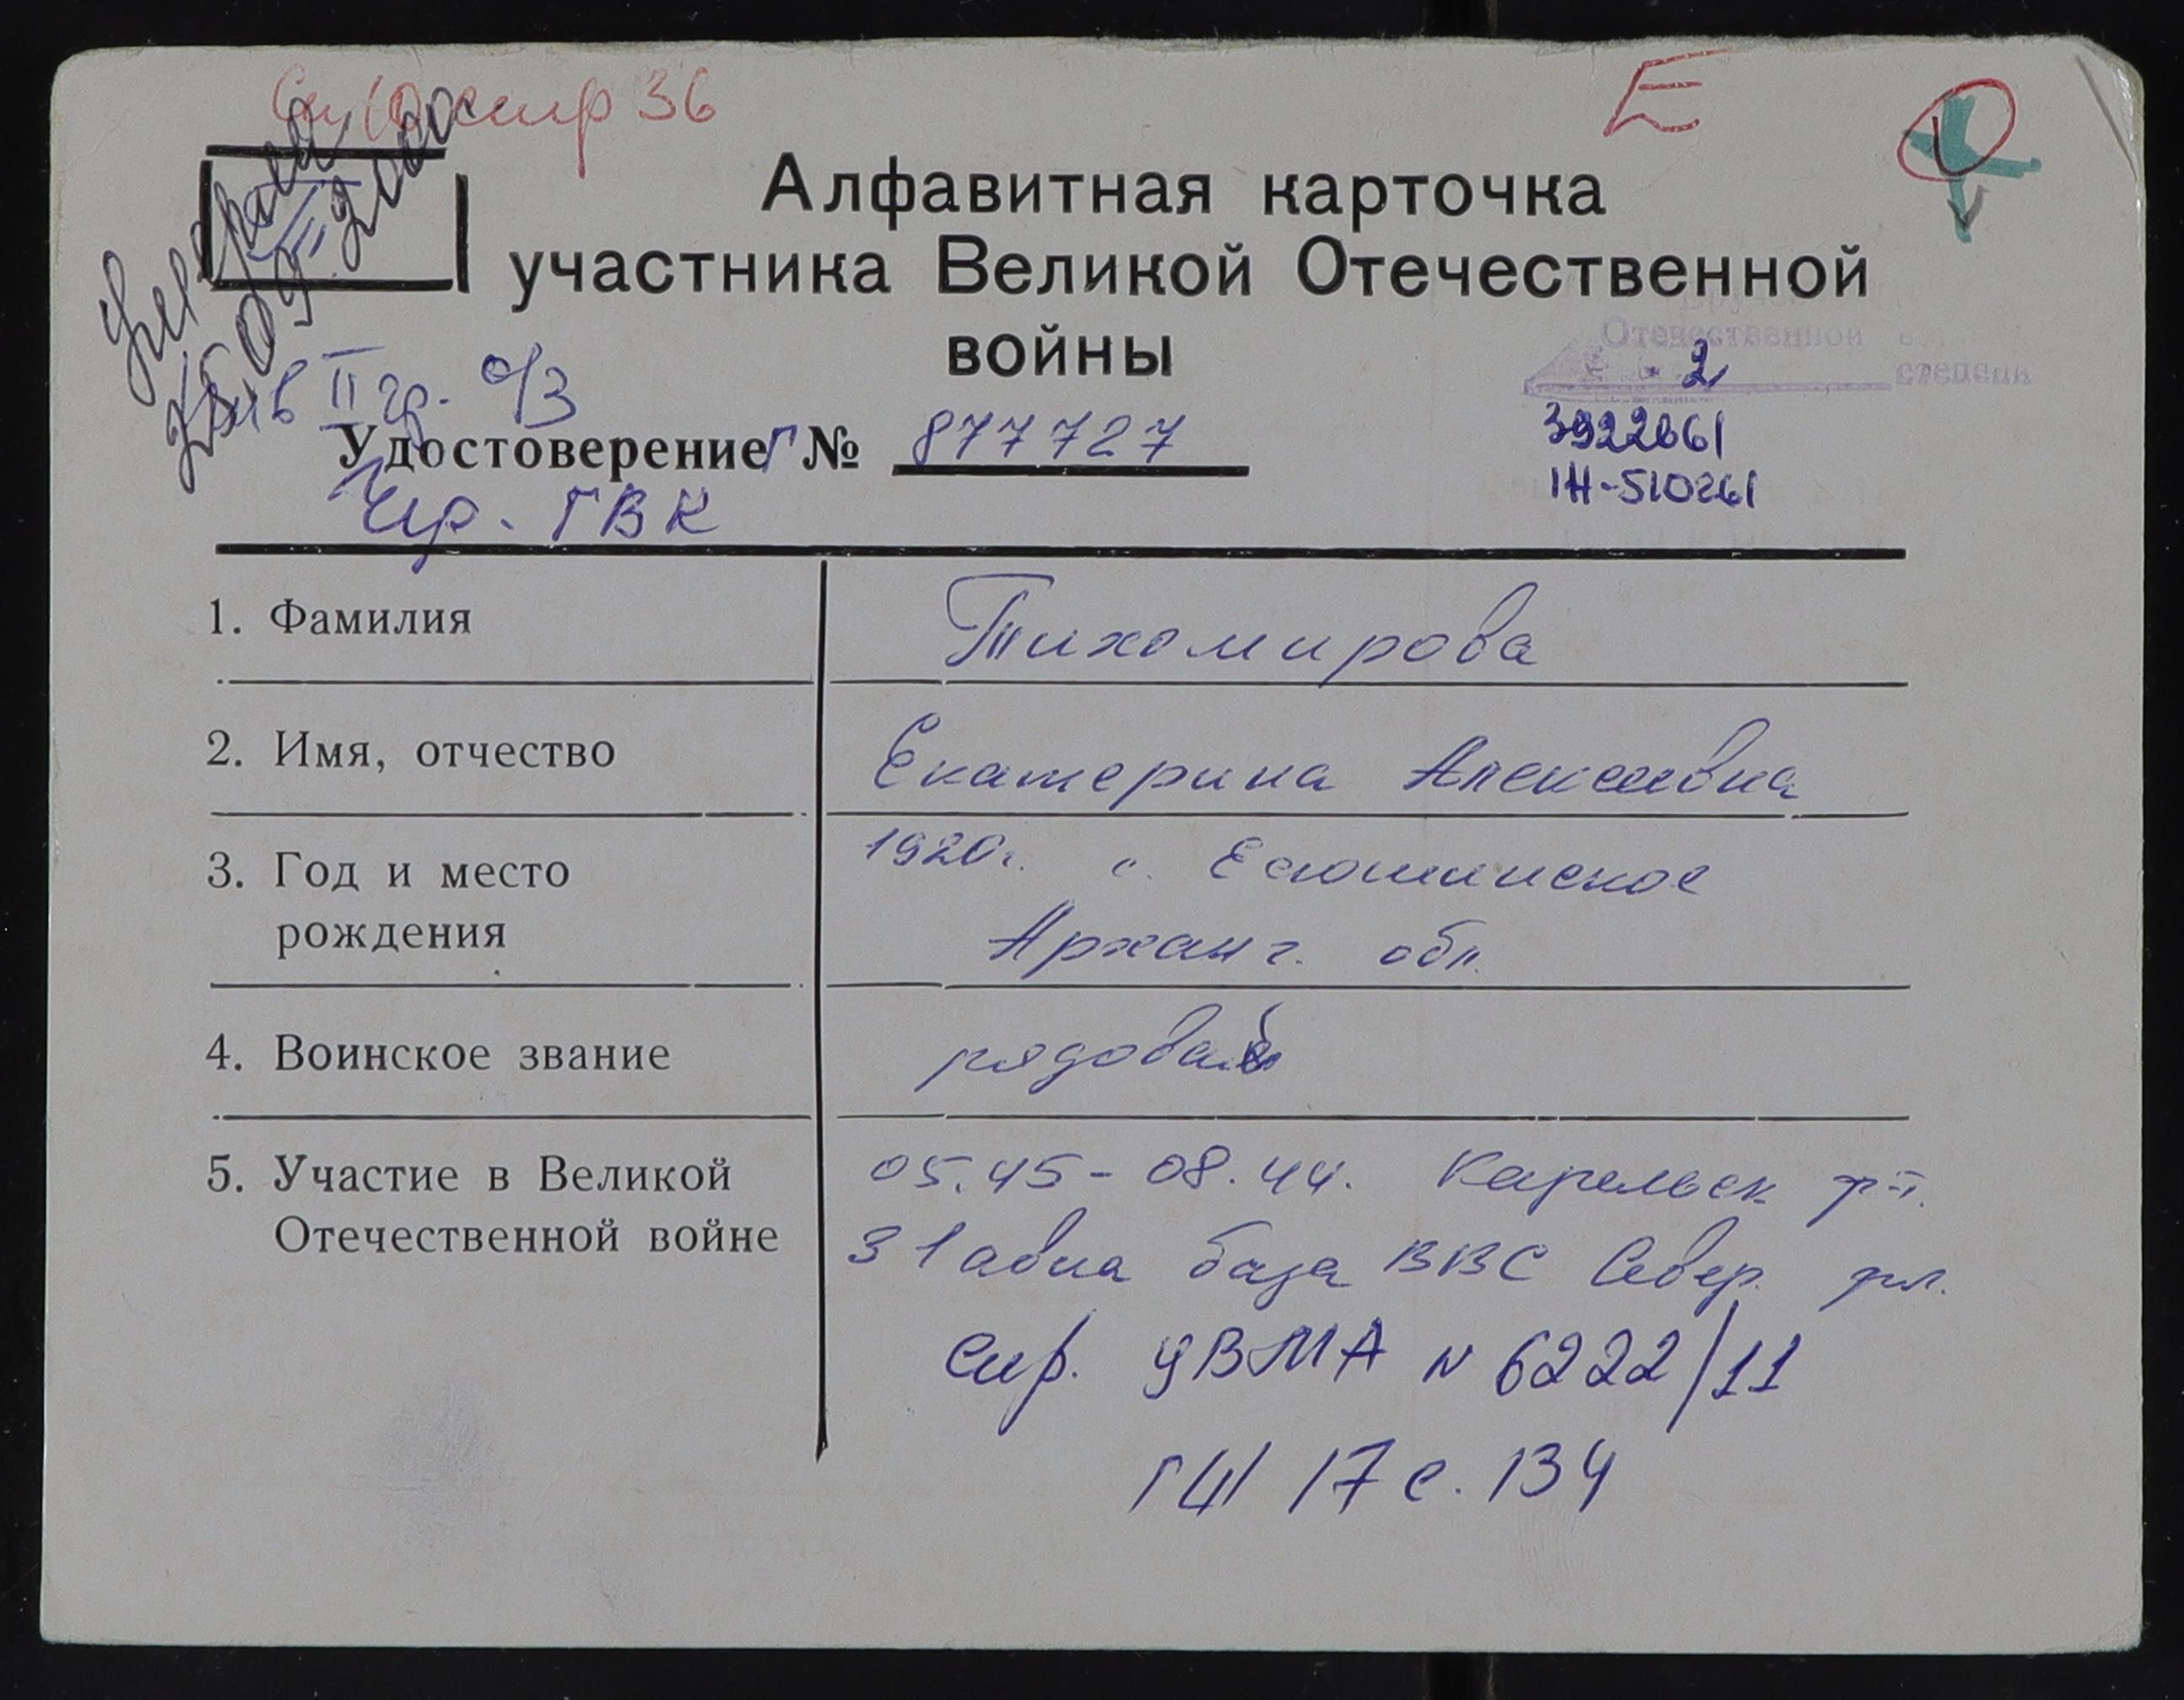 стр 36
Е
Алфавитная карточка
участника Великой Отечественной
войны
Отечественной
2
степени
инв II гр. о/з
Удостоверение Г № 877727
3922661
1Н-510261
Чер. ГВК
1. Фамилия Тихомирова
2. Имя, отчество Екатерина Алексеевна
3. Год и место 1920г. с.
рождения Арханг. обл.
4. Воинское звание рядовой
5. Участие в Великой 05.45-08.44. Карельск ф-т.
Отечественной войне 31 авиа база ВВС Север. фл.
спр. ЦВМА N 6222/11
17 с. 134